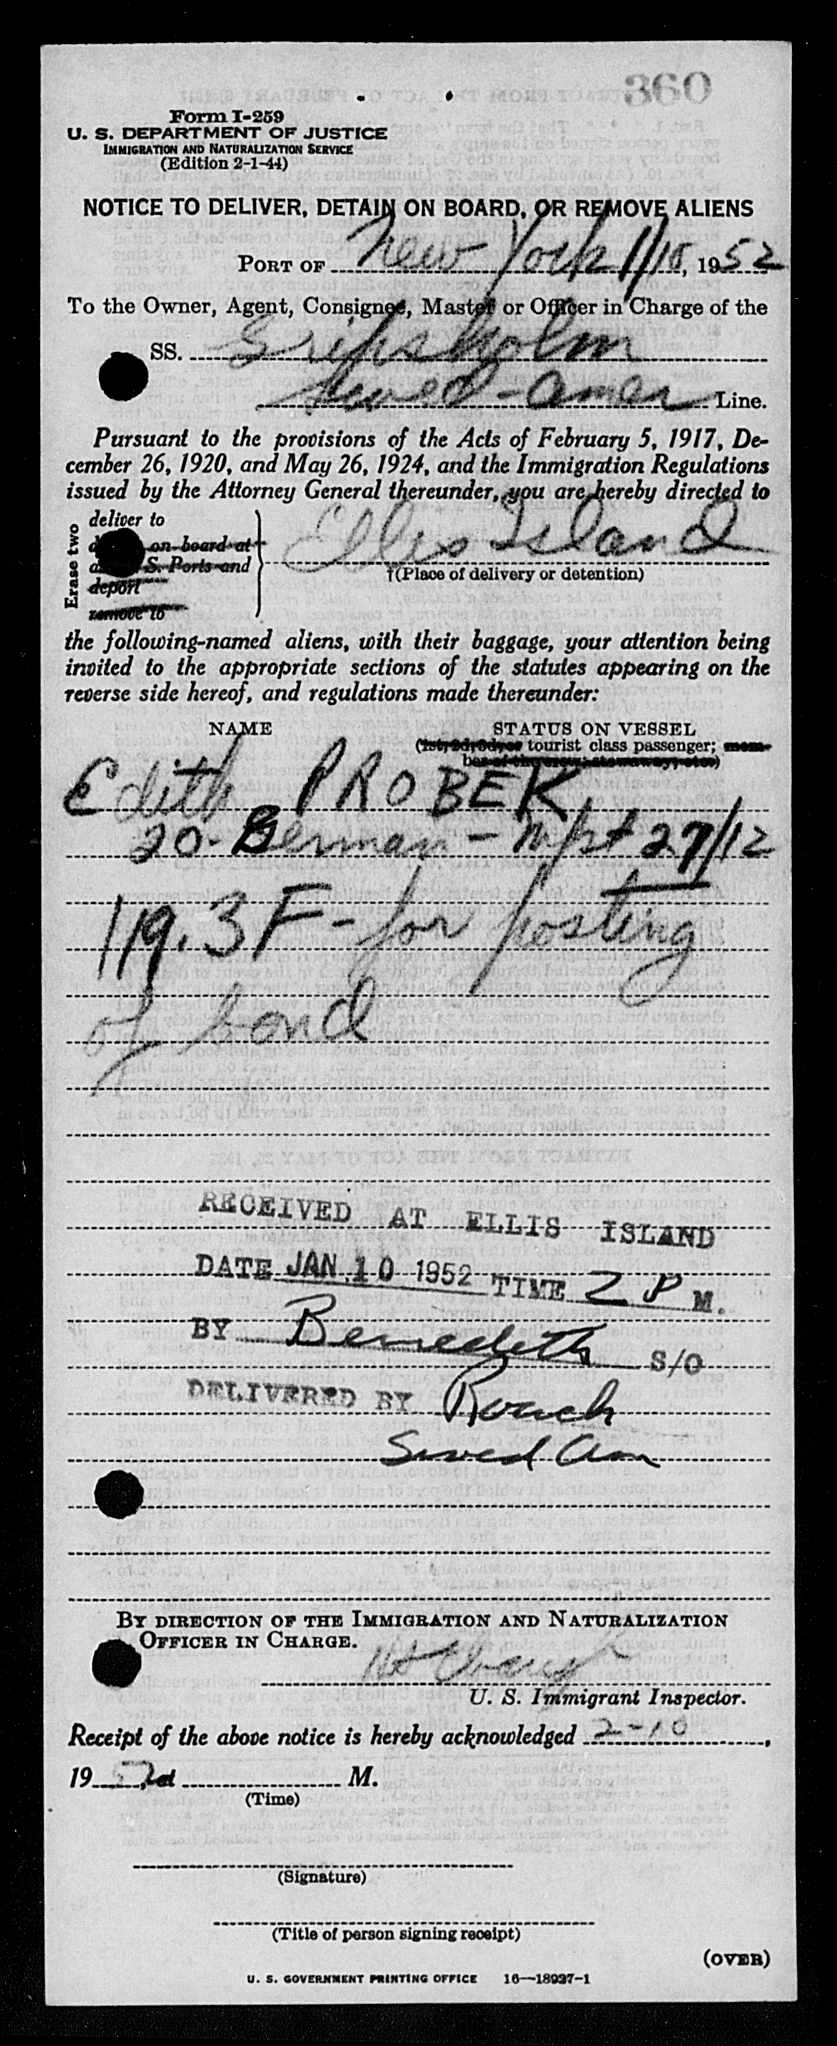 360
Form I-259
U. S. DEPARTMENT OF JUSTICE
IMMIGRATION AND NATURALIZATION SERVICE
(Edition 2-1-44)
NOTICE TO DELIVER, DETAIN ON BOARD, OR REMOVE ALIENS
PORT OF New York 1/10, 1952
To the Owner, Agent, Consignee, Master or Officer in Charge of the
SS. Gripsholm
Swed-Amer Line.
Pursuant to the provisions of the Acts of February 5, 1917, De-
cember 26, 1920, and May 26, 1924, and the Immigration Regulations
issued by the Attorney General thereunder, you are hereby directed to
Erase two
deliver to
on board at
S. Ports and
deport
remove to
Ellis Island
†(Place of delivery or detention)
the following-named aliens, with their baggage, your attention being
invited to the appropriate sections of the statutes appearing on the
reverse side hereof, and regulations made thereunder:
NAME STATUS ON VESSEL
(1st, 2d, 3d, or tourist class passenger; mem-
ber of the crew; stowaway; etc)
Edith PROBEK
20- German - Mfst 27/12
119.3F - for posting
of bond
RECEIVED AT ELLIS ISLAND
DATE JAN 10 1952 TIME 2 P M.
BY S/O
DELIVERED BY Roach
Swed Am
BY DIRECTION OF THE IMMIGRATION AND NATURALIZATION
OFFICER IN CHARGE.
U. S. Immigrant Inspector.
Receipt of the above notice is hereby acknowledged 2-10,
1952, at M.
(Time)
(Signature)
(Title of person signing receipt)
(OVER)
U. S. GOVERNMENT PRINTING OFFICE 16—18927-1